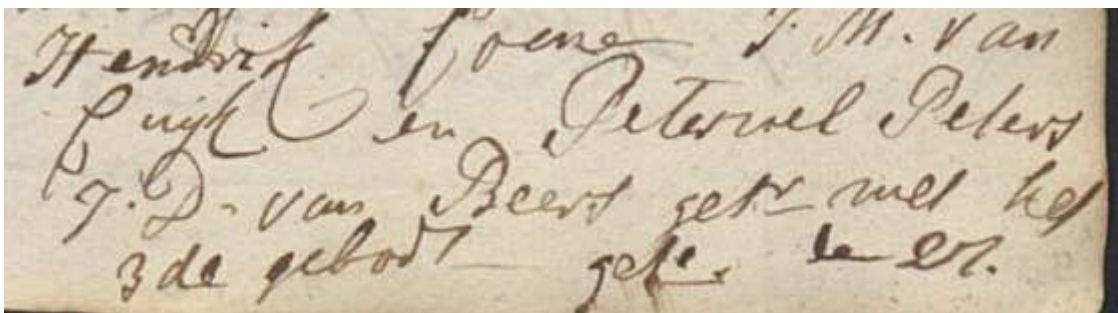 Hendrik Coene J. M. van
Cuijk en Peternel Peters
J. D. van Beers getr met het
3de gebodt get. den 21.